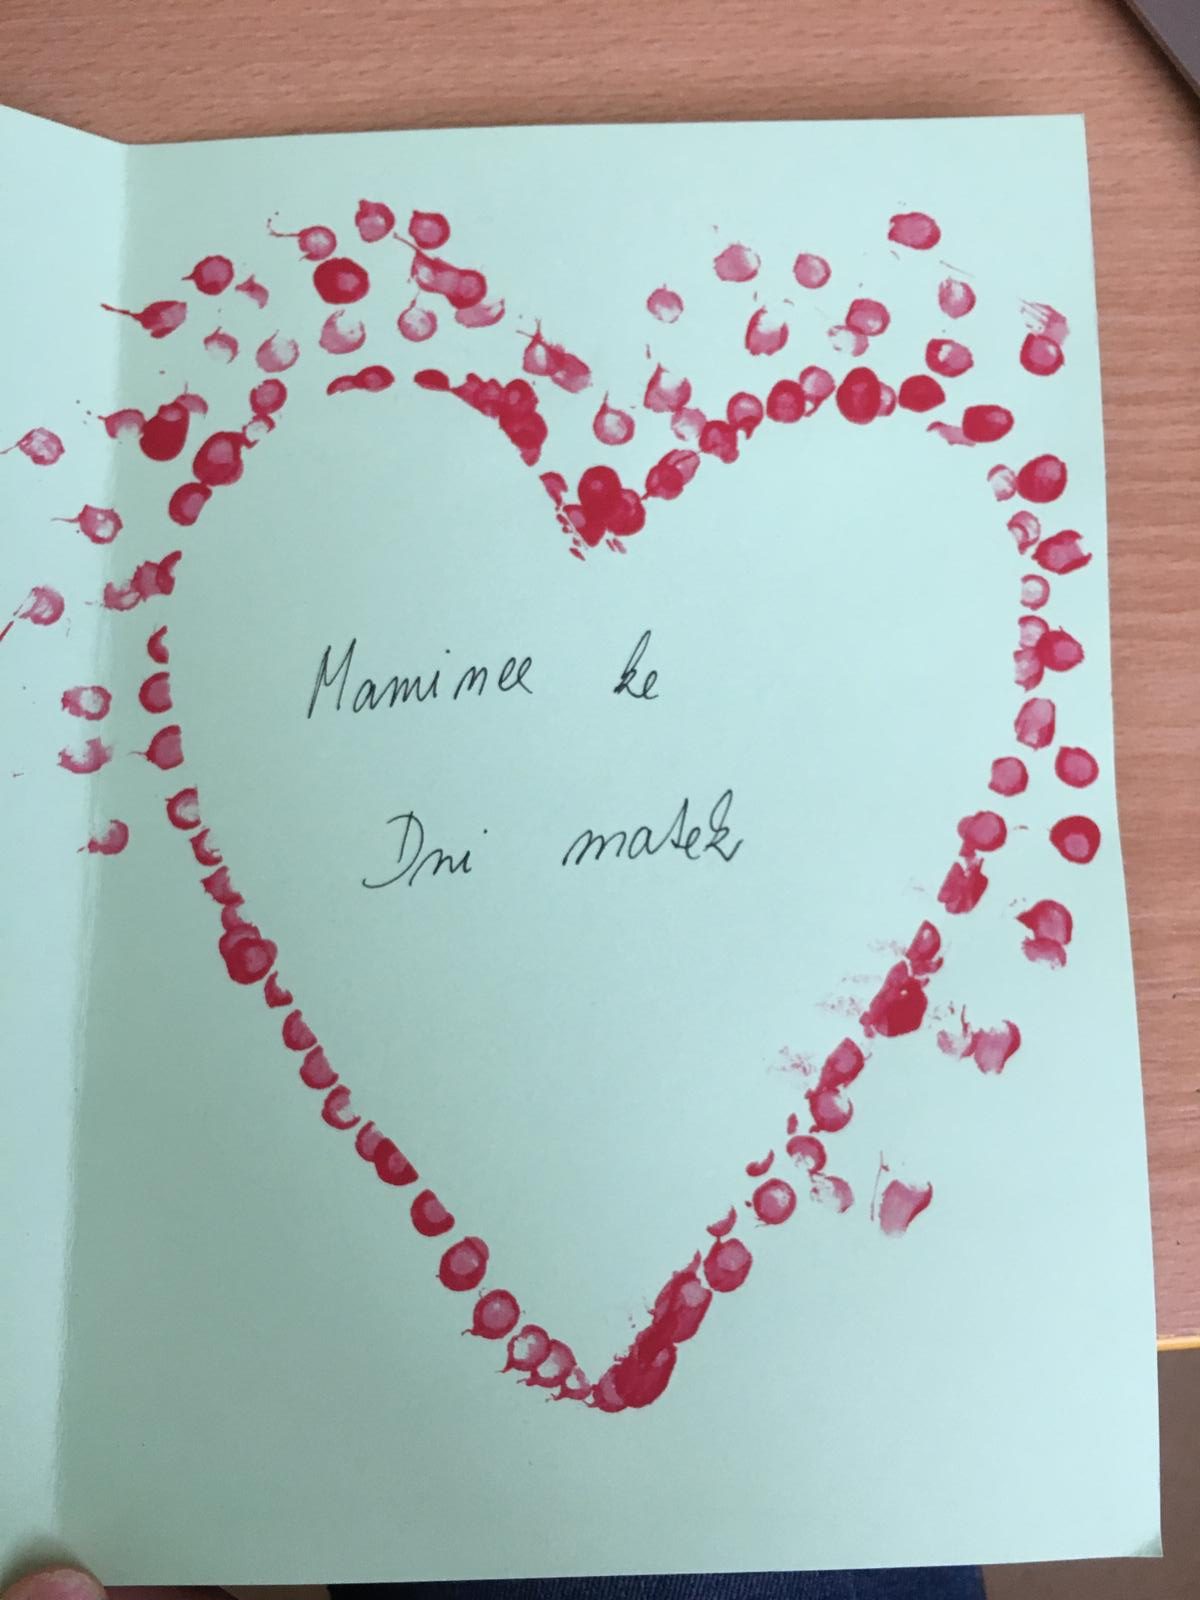 Maminee ke
Dni matek